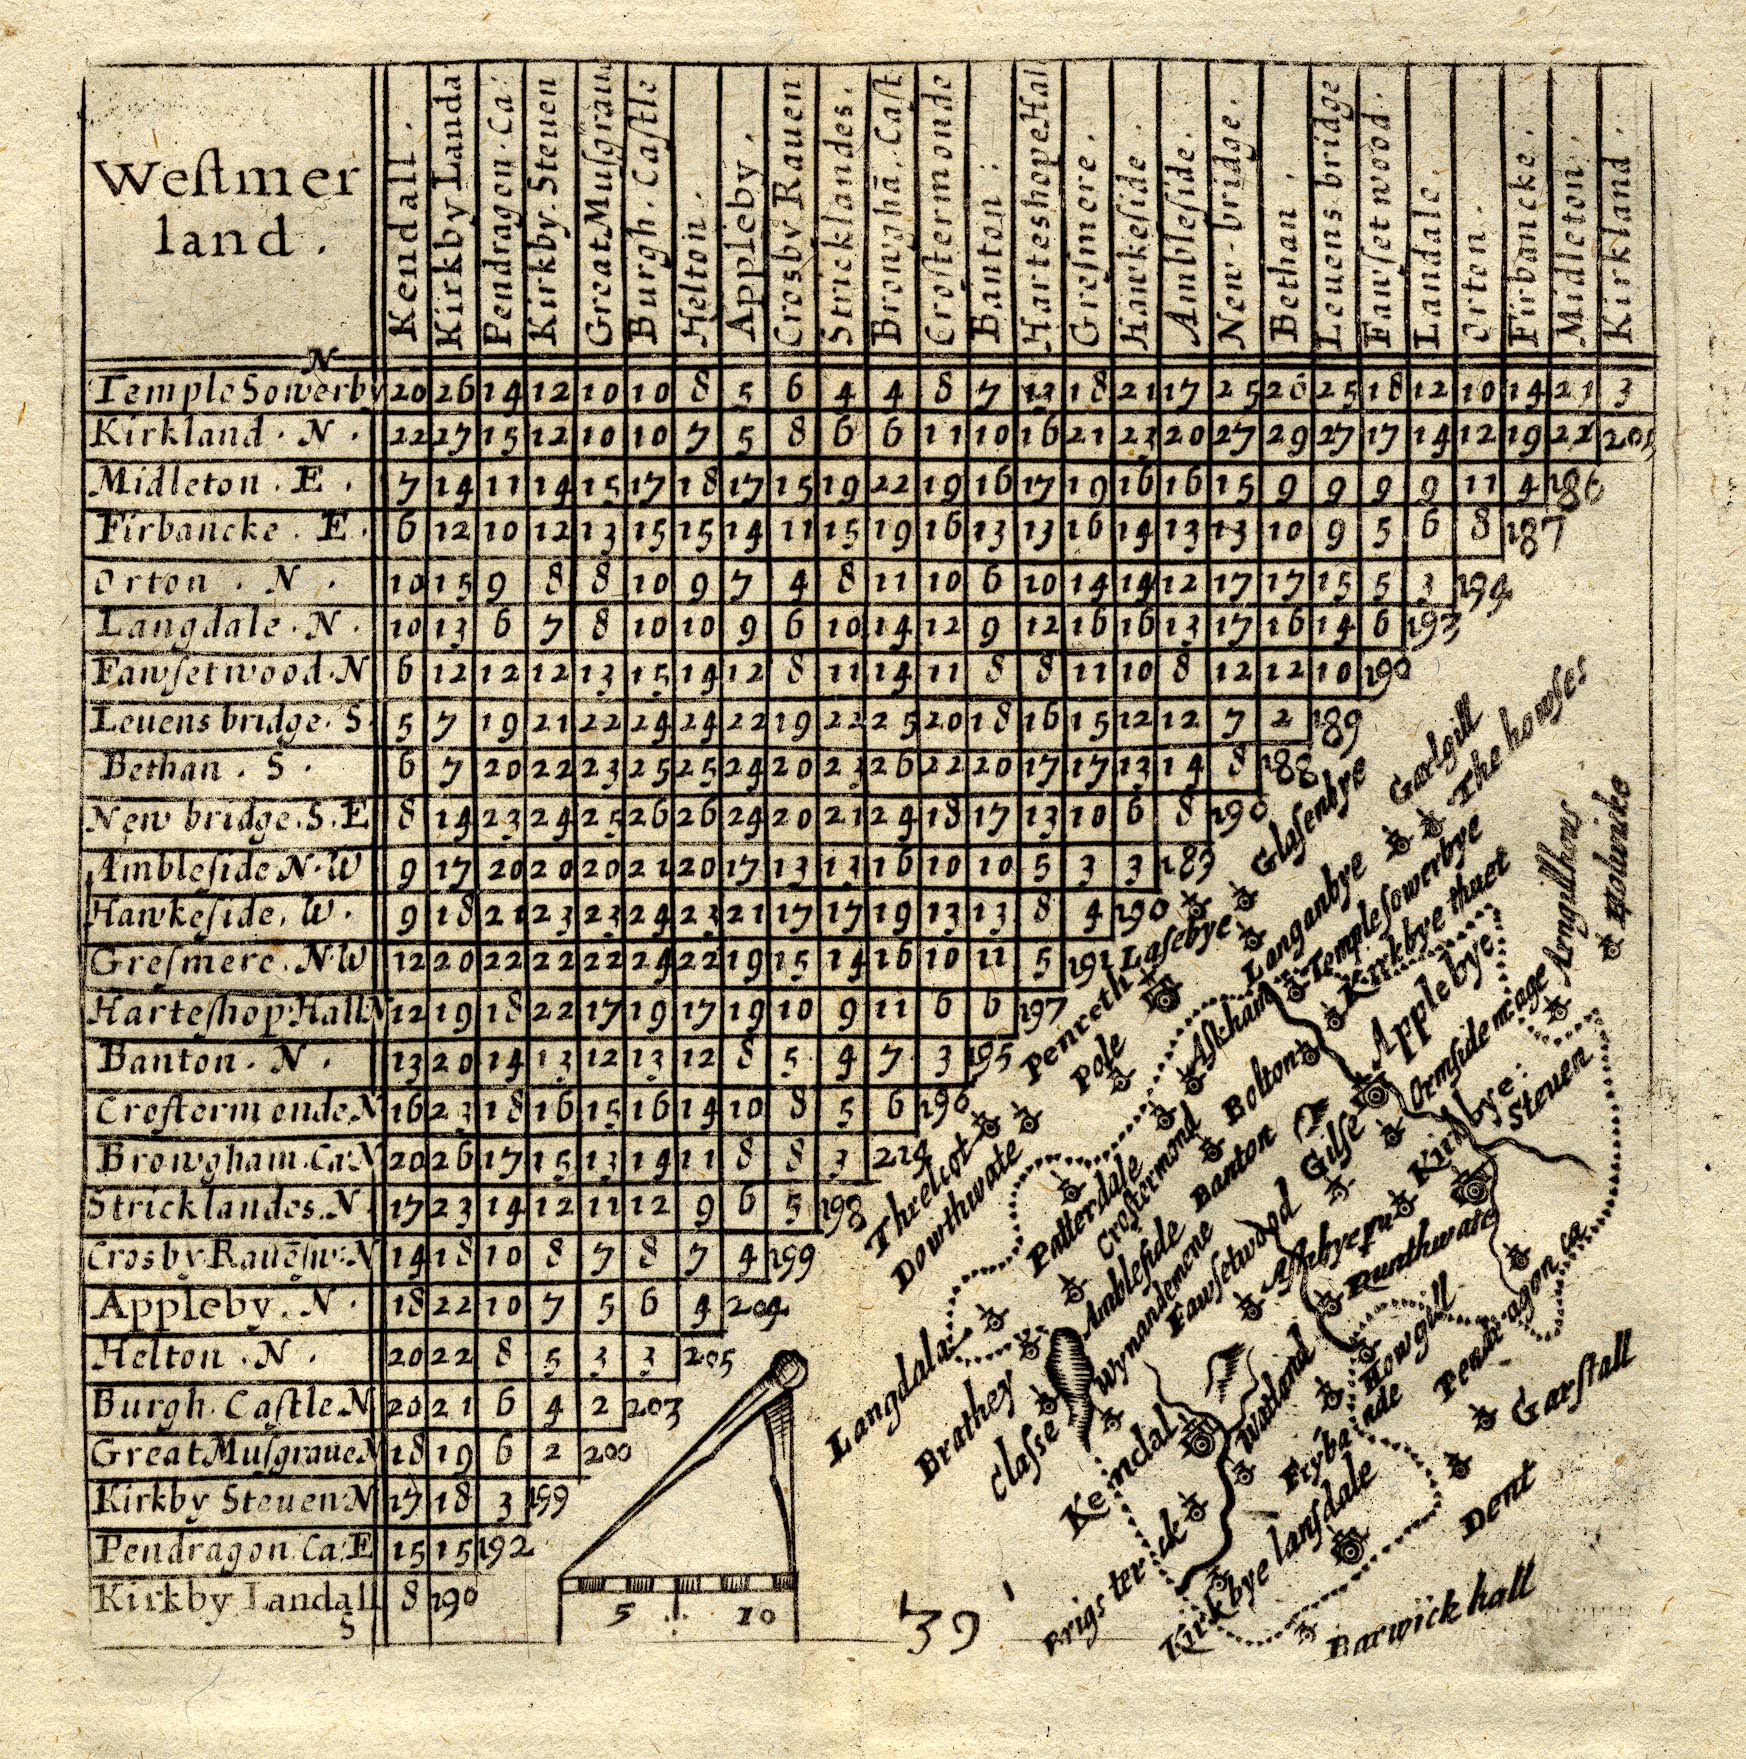 Weſtmer
land .
Kendall .
Kirkby Landa
Pendragon . Ca
Kirkby . Steuen
Great Muſgraue
Burgh . Caſtle
Helton .
Appleby .
Crosby Rauen
Stricklandes .
Browghā . Caſt
Croſtermonde
Banton :
HarteshopeHal
Greſmere .
Hawkeſide .
Ambleſide .
New-bridge .
Bethan .
Leuens bridge
Fawſet wood .
Landale .
Orton .
Firbancke .
Midleton .
Kirkland .
N
Temple Sowerby 20 26 14 12 10 10 8 5 6 4 4 8 7 13 18 21 17 25 26 25 18 12 10 14 21 3
Kirkland . N . 22 27 15 12 10 10 7 5 8 6 6 11 10 16 21 23 20 27 29 27 17 14 12 19 22 205
Midleton . E . 7 14 11 14 15 17 18 17 15 19 22 19 16 17 19 16 16 15 9 9 9 9 11 4 186
Firbancke . E . 6 12 10 12 13 15 15 14 11 15 19 16 13 13 16 14 13 13 10 9 5 6 8 187
Orton . N . 10 15 9 8 8 10 9 7 4 8 11 10 6 10 14 14 12 17 17 15 5 3 194
Langdale . N . 10 13 6 7 8 10 10 9 6 10 14 12 9 12 16 16 13 17 16 14 6 193
Fawſet wood . N 6 12 12 12 13 15 14 12 8 11 14 11 8 8 11 10 8 12 12 10 190
Leuens bridge . S . 5 7 19 21 22 24 24 22 19 22 25 20 18 16 15 12 12 7 2 189
Bethan . S . 6 7 20 22 23 25 25 24 20 23 26 22 20 17 17 13 14 8 188
New bridge . S . E 8 14 23 24 25 26 26 24 20 21 24 18 17 13 10 6 8 190
Ambleſide N . W 9 17 20 20 20 21 20 17 13 13 16 10 10 5 3 3 189
Hawkeſide . W . 9 18 21 23 23 24 23 21 17 17 19 13 13 8 4 190
Greſmere . N . W 12 20 22 22 22 24 22 19 15 14 16 10 11 5 191
Harteſhop Hall N 12 19 18 22 17 19 17 19 10 9 11 6 6 197
Banton . N . 13 20 14 13 12 13 12 8 5 4 7 3 195
Croſtermonde . N 16 23 18 16 15 16 14 10 8 5 6 196
Browgham . Ca . N 20 26 17 15 13 14 11 8 8 3 214
Stricklandes . N . 17 23 14 12 11 12 9 6 5 198
Crosby Rauēſw : N 14 18 10 8 7 8 7 4 199
Appleby . N . 18 22 10 7 5 6 4 204
Helton . N . 20 22 8 5 3 3 205
Burgh . Caſtle N 20 21 6 4 2 203
Great Muſgraue N 18 19 6 2 200
Kirkby Steuen . N 17 18 3 199
Pendragon . Ca : E 15 15 192
Kirkby Landall 8 190
S
5 10
39
Garlgill
The howſes
Glaſenbye
Laſebye
Langanbye
Temple ſowerbye
Kirkbye thuet
Arnguilhous
Penreth
Pole
Aſkham
Applebye
Bolton
Ormſide
Kirkbye : Steuen
Threlcot
Dowthwate
Patterdale
Croſtermond
Banton
Gilſe
Ambleſide
Wynandemere
Fawſetwood
Runthwate
Pendragon ca
Langdala
Brathey
Claſſe
Kendal
Howgill
Garſtall
Dent
Brigsterick
Kirkbye lanſdale
Barwick hall